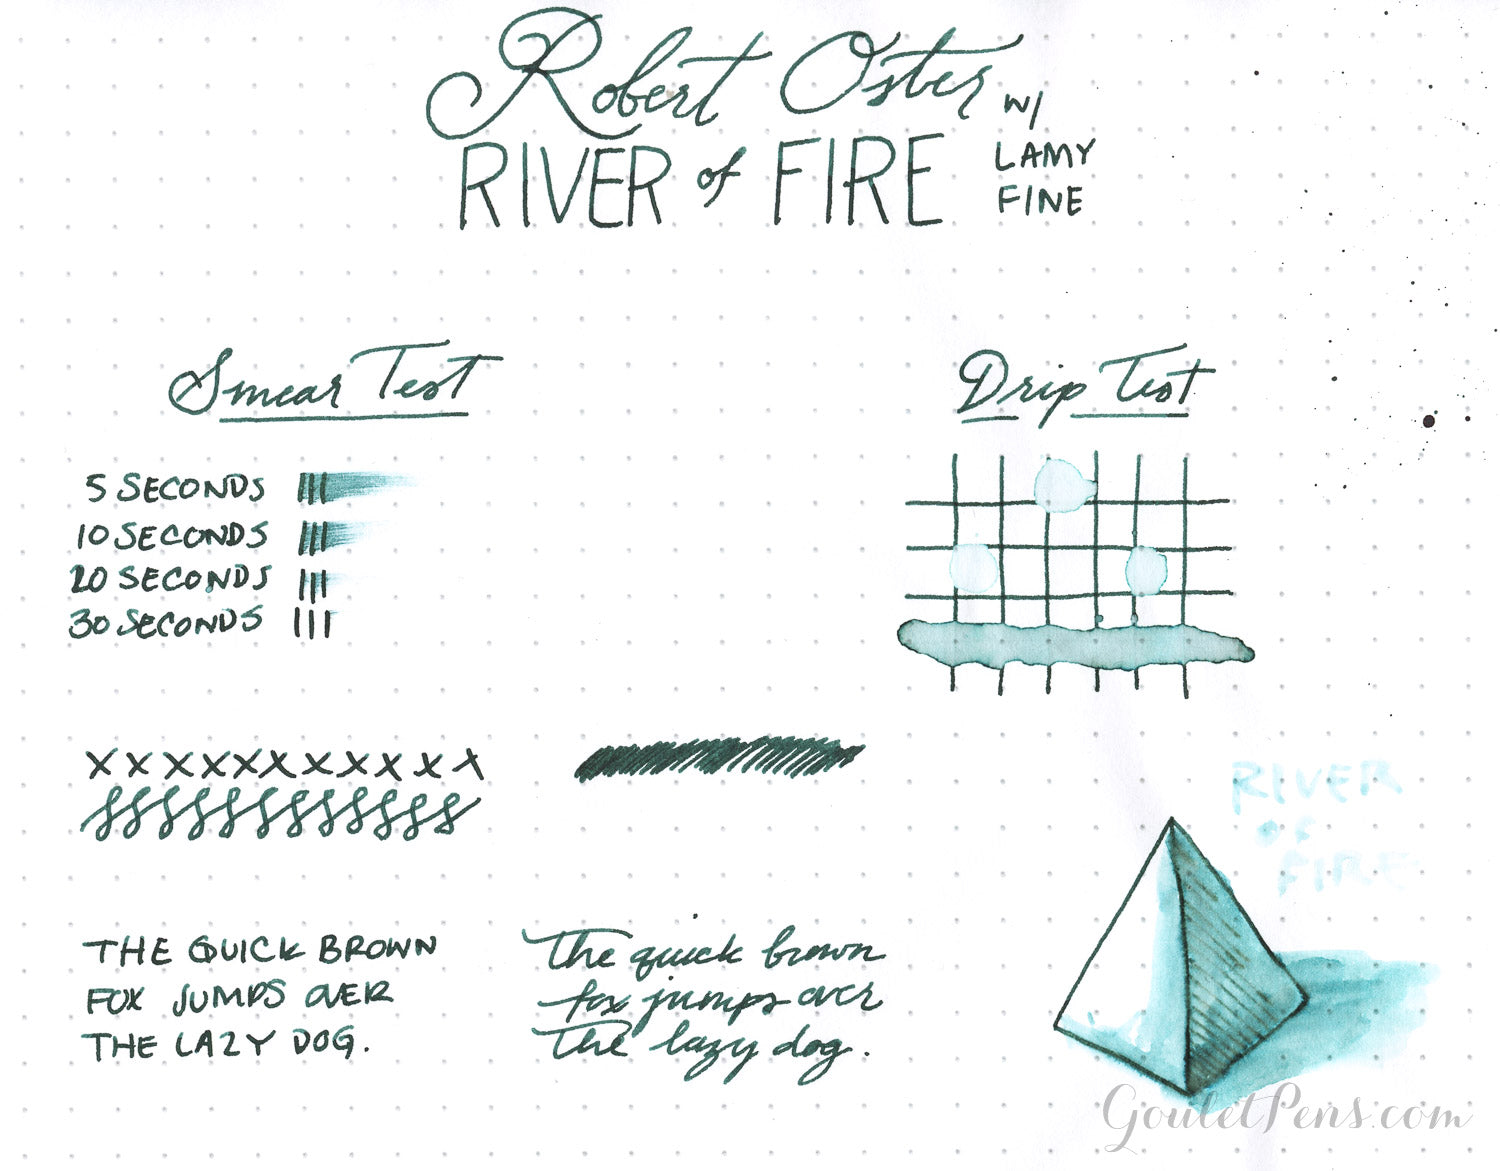 Robert Oster w/
RIVER of FIRE
LAMY
FINE
Smear Test
5 SECONDS
10 SECONDS
20 SECONDS
30 SECONDS
Drip Test
x x x x x x x x x x x x
RIVER
OF
FIRE
THE QUICK BROWN
FOX JUMPS OVER
THE LAZY DOG.
The quick brown
fox jumps over
The lazy dog.
GouletPens.com